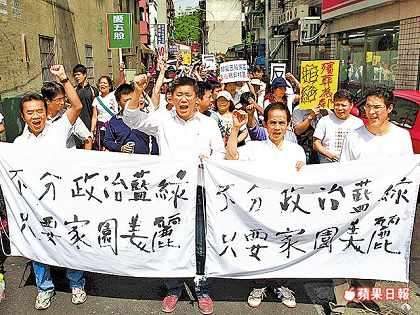 五股
拒絕
不分政治藍綠
只要家園美麗
不分政治藍綠
只要家園美麗
蘋果日報